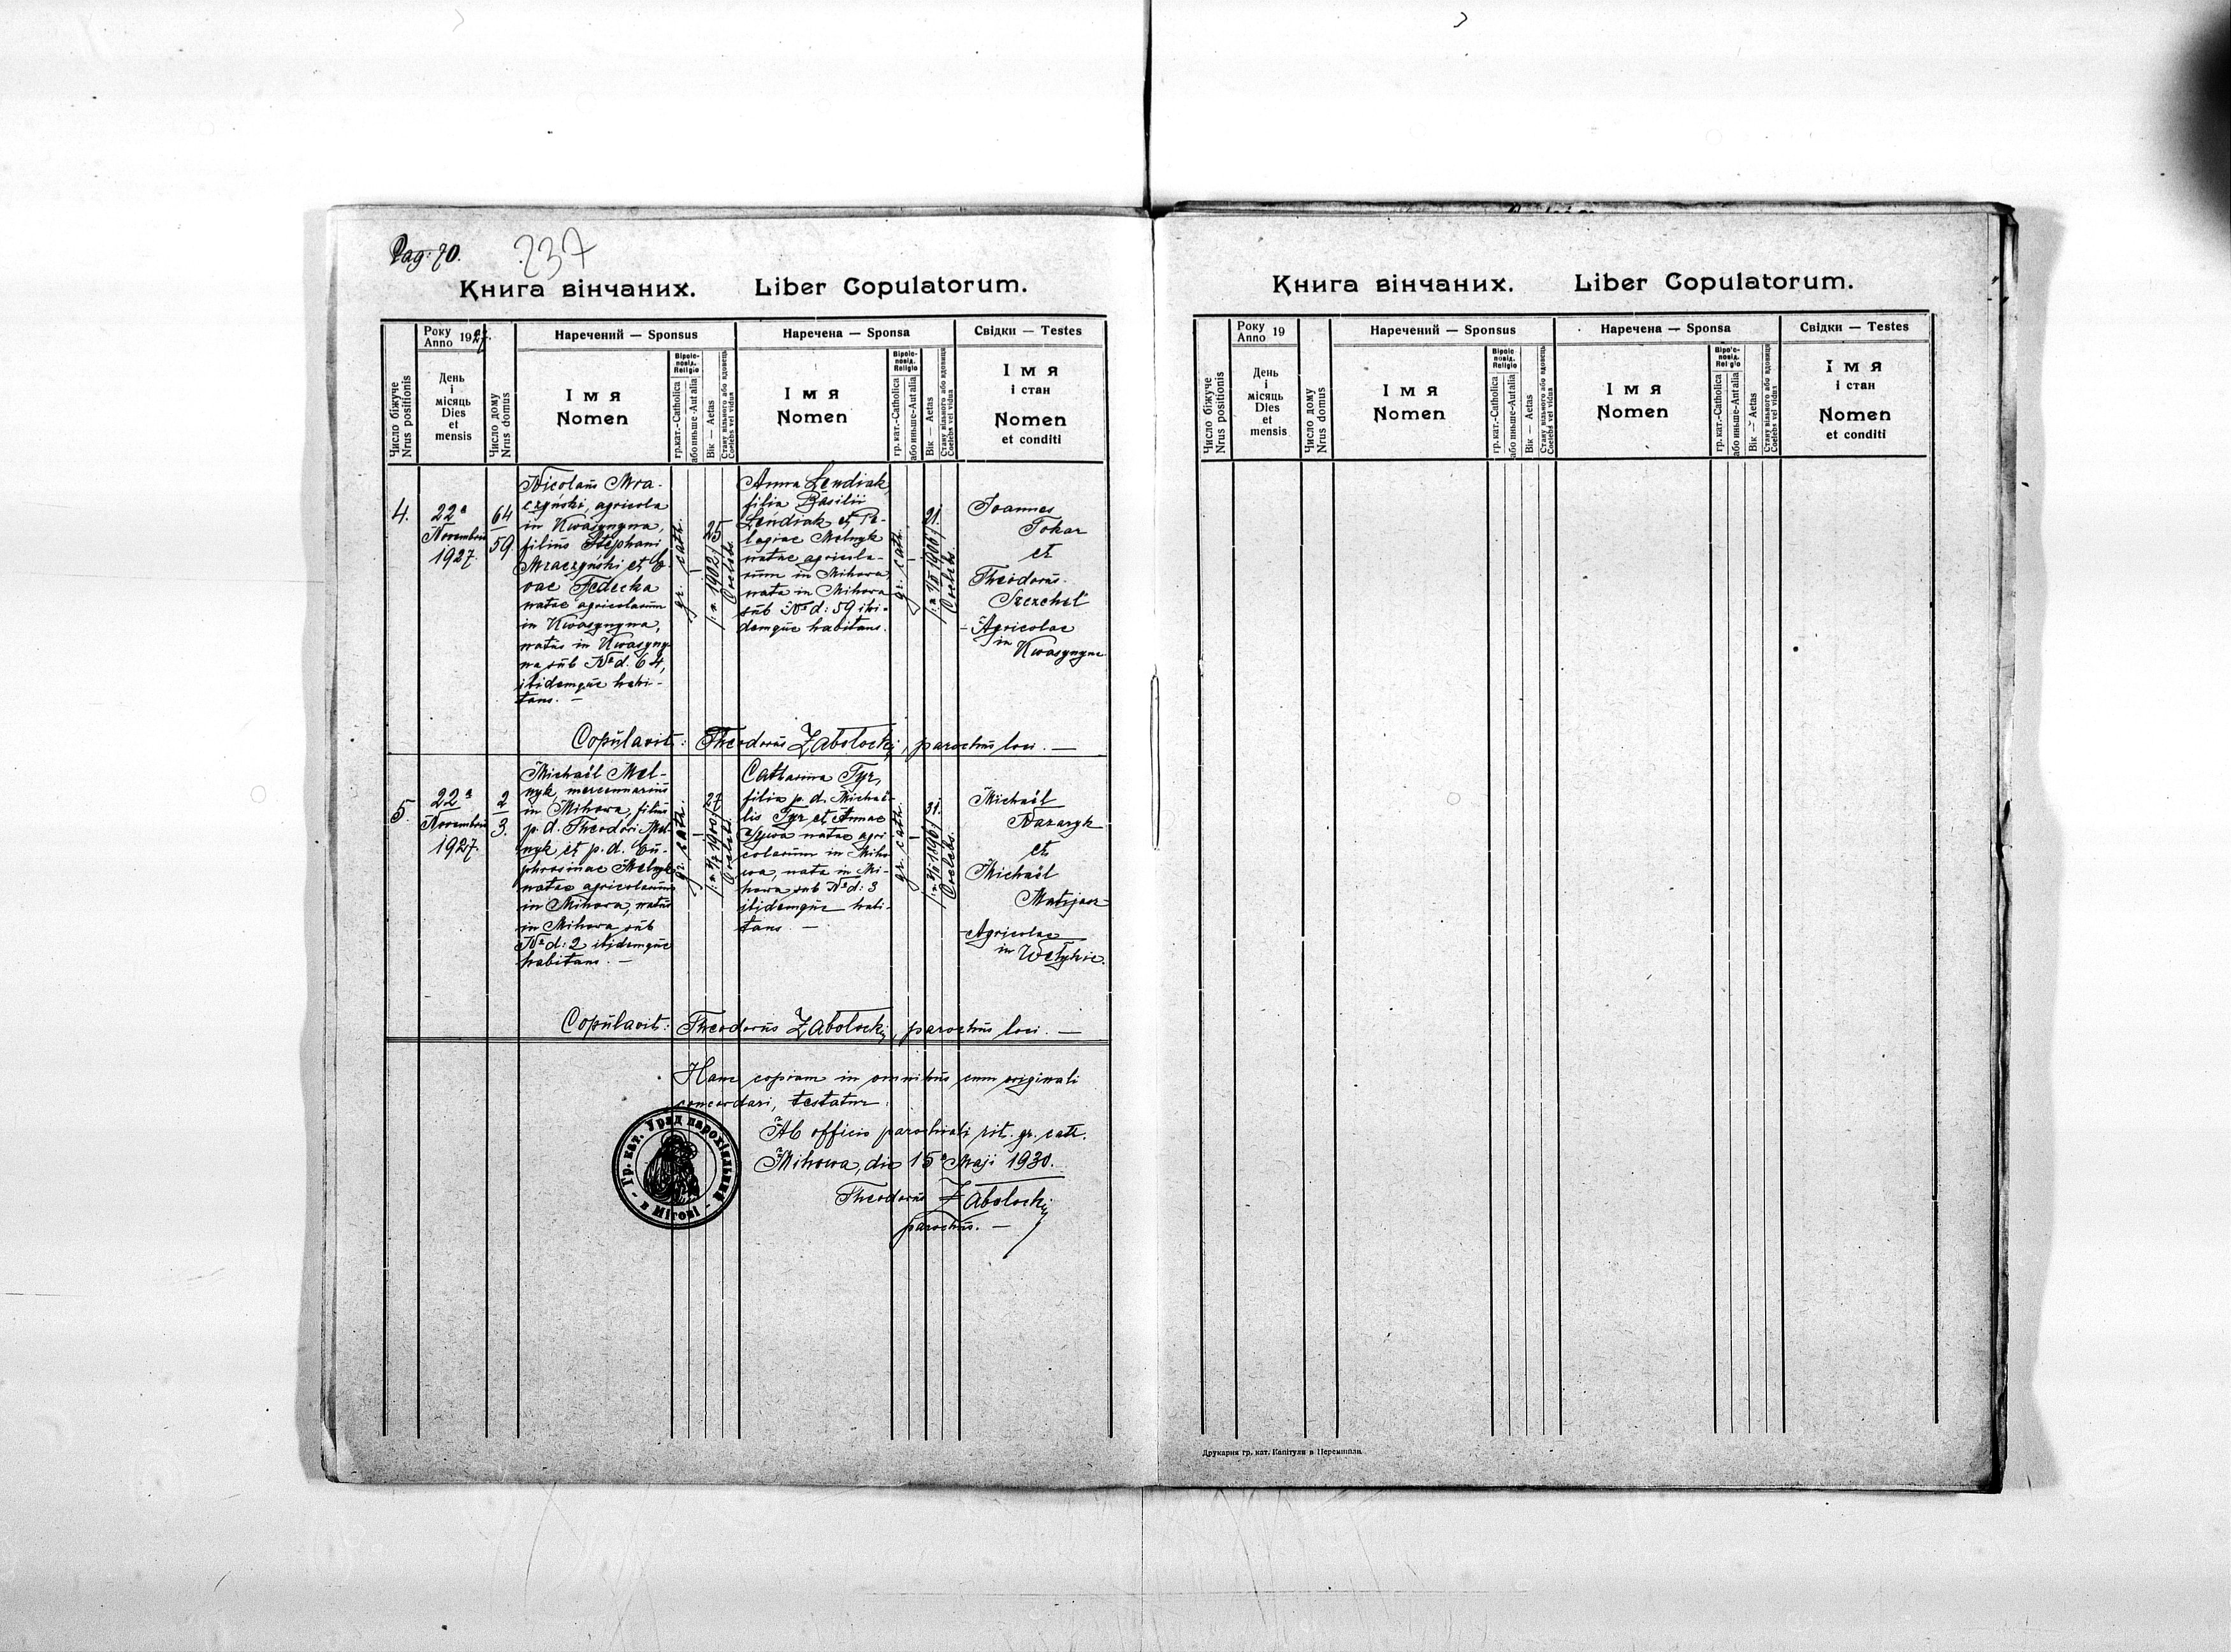 Pag: 70.
237
Книга вінчаних. Liber Copulatorum.
Число біжуче
Nrus positionis
Року
Anno 1927.
День
і
місяць
Dies
et
mensis
Число дому
Nrus domus
Наречений — Sponsus
Імя
Nomen
Віроіс-
повід.
Religio
гр.кат.-Catholica
або иньше-Aut alia
Вік — Aetas
Стану вільного або вдовець
Coelebs vel vidus
Наречена — Sponsa
Імя
Nomen
Віроіс-
повід.
Religio
гр. кат.-Catholica
або иньше-Aut alia
Вік — Aetas
Стану вільного або вдовиця
Coelebs vel vidus
Свідки — Testes
Імя
і стан
Nomen
et conditi
4.
22a
Novembris
1927.
64
59.
Nicolaus Mra-
czyński, agricola
in Kwasynyna,
filius Stephani
Mraczyński et E-
vae Fedecka
natae agricolarum
in Kwasynyna,
natus in Kwasyny-
na sub No d. 64,
ibidemque habi-
tans. —
gr. cath.
25
Coelebs.
Anna Lendiak,
filia Basilii
Lendiak et Pe-
lagiae Melnyk
natae agricola-
rum in Mihowa,
nata in Mihowa
sub No d: 59 ibi-
demque habitans.
gr. cath.
21.
Coelebs.
Joannes
Tokar
et
Theodorus
Szezchel
- Agricolae
in Kwasynyna
Copulavit: Theodorus Zabolockij, parochus loci. —
5.
22a
Novembris
1927.
2
3.
Michaël Mel-
nyk mercennarius
in Mihowa, filius
p. d. Theodori Mel-
nyk et p. d. Eu-
phrosinae Melnyk
natae agricolarum
in Mihowa, natus
in Mihowa sub
No d: 2 ibidemque
habitans. —
gr. cath.
27
Coelebs.
Catharina Tyr,
filia p. d. Michaë-
lis Tyr et Annae
natae agri-
colarum in Miho-
wa, nata in Mi-
howa sub No d: 3
ibidemque habi-
tans. —
gr. cath.
31.
Coelebs.
Michaël
Nazaryk
et
Michaël
Matijasz
Agricolae
in Wełykie.
Copulavit: Theodorus Zabolockij, parochus loci. —
Hanc copiam in omnibus cum originali
concordari, testatur:
Ab officio parochiali rit. gr. cath.
Mihowa, die 15a Maji 1930.
Theodorus Zabolockij
parochus. —
Гр. кат. Уряд парохіяльний
в Міговi
Книга вінчаних. Liber Copulatorum.
Число біжуче
Nrus positionis
Року
Anno 19
День
і
місяць
Dies
et
mensis
Число дому
Nrus domus
Наречений — Sponsus
Імя
Nomen
Віроіс-
повід.
Religio
гр. кат.-Catholica
або иньше-Aut alia
Вік — Aetas
Стану вільного або вдовець
Coelebs vel vidus
Наречена — Sponsa
Імя
Nomen
Віроіс-
повід.
Religio
гр. кат.-Catholica
або иньше-Aut alia
Вік — Aetas
Стану вільного або вдовиця
Coelebs vel vidus
Свідки — Testes
Імя
і стан
Nomen
et conditi
Друкарня гр. кат. Капітули в Перемишли.